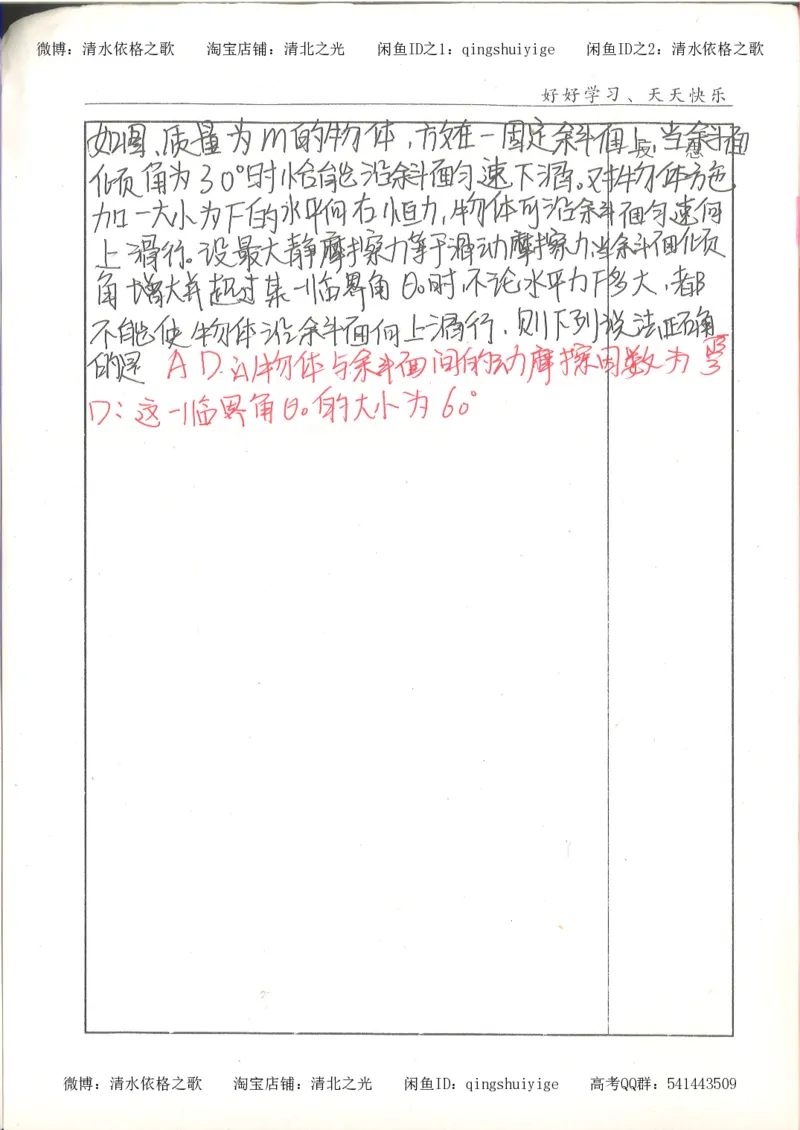 微博：清水依格之歌 淘宝店铺：清北之光 闲鱼ID之1：qingshuiyige 闲鱼ID之2：清水依格之歌
好好学习、天天快乐
反 思
如图，质量为m的物体，放在一固定斜面上，当斜面
倾角为30°时恰能沿斜面匀速下滑。对物体施
加一大小为F的水平向右恒力，物体可沿斜面匀速向
上滑行。设最大静摩擦力等于滑动摩擦力，当斜面倾
角增大并超过某一临界角θ₀时，不论水平力F多大，都
不能使物体沿斜面向上滑行，则下列说法正确
的是 A D. A/物体与斜面间的动摩擦因数为√3/3
D：这一临界角θ₀的大小为60°
微博：清水依格之歌 淘宝店铺：清北之光 闲鱼ID：qingshuiyige 高考QQ群：541443509